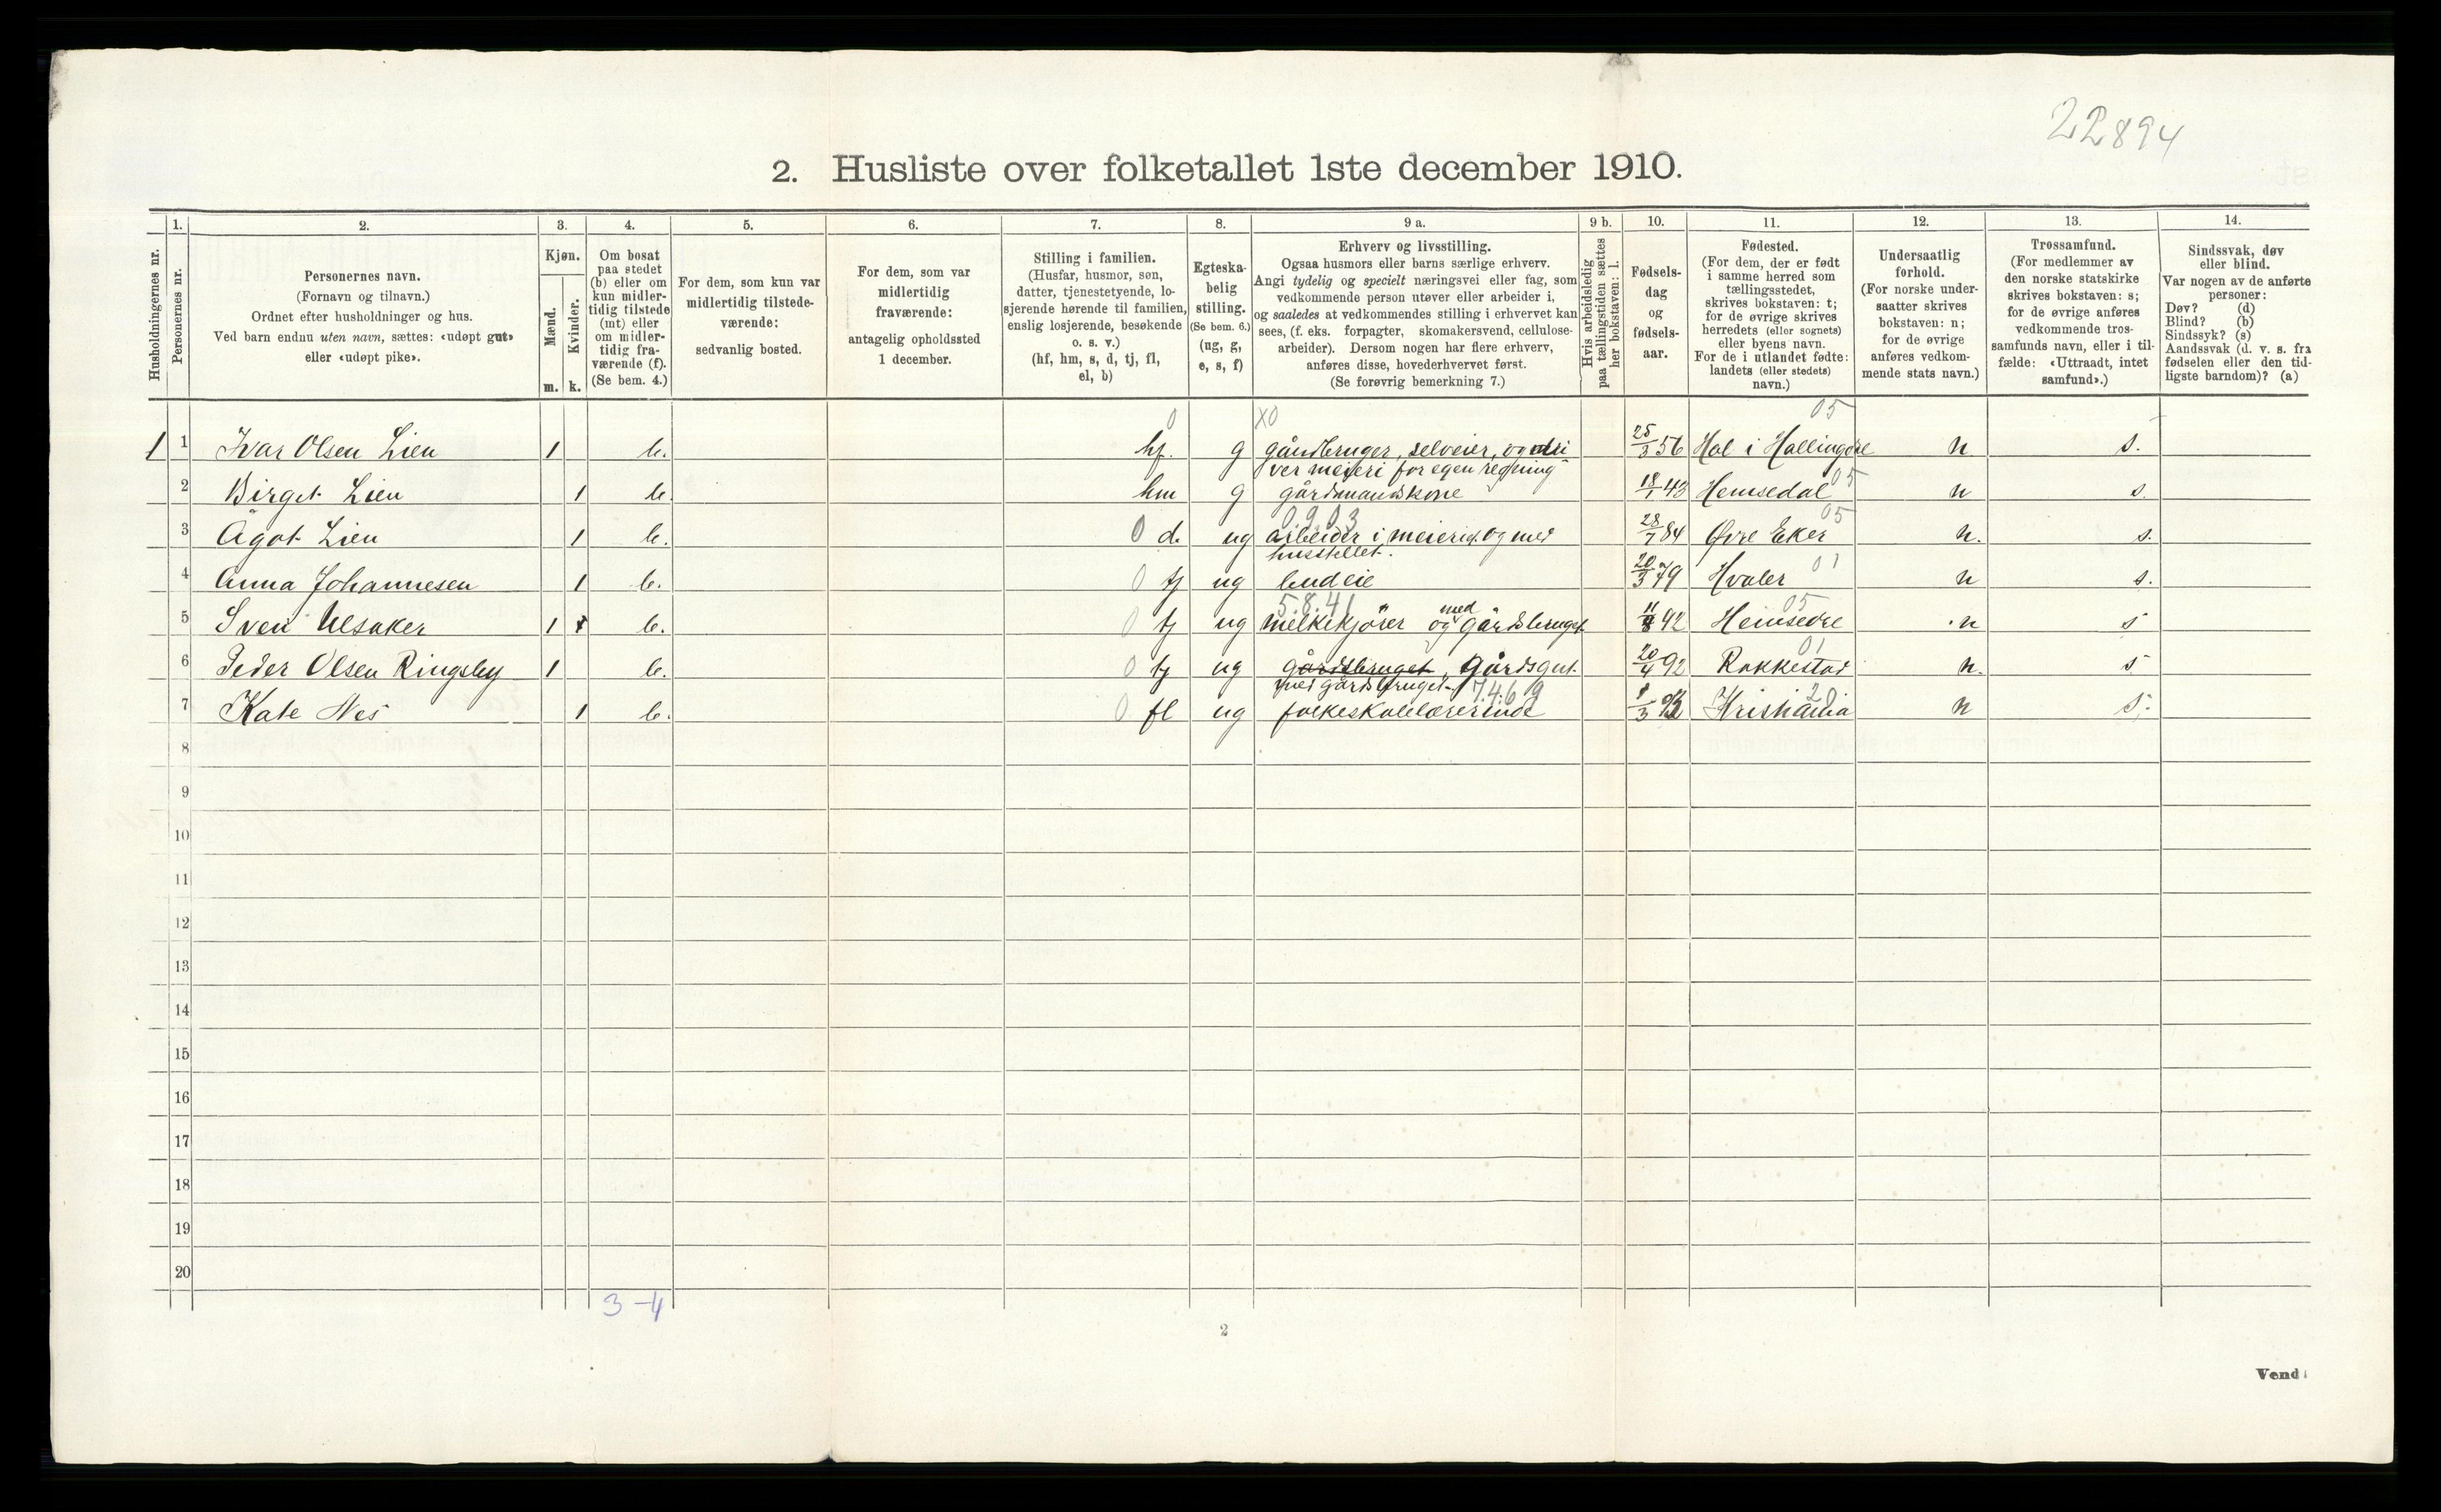 22894
2. Husliste over folketallet 1ste december 1910.
Husholdningernes nr.
1.
Personernes nr.
2.
Personernes navn.
(Fornavn og tilnavn.)
Ordnet efter husholdninger og hus.
Ved barn endnu uten navn, sættes: «udøpt gut»
eller «udøpt pike».
3.
Kjøn.
Mænd.
Kvinder.
m. k.
4.
Om bosat
paa stedet
(b) eller om
kun midler-
tidig tilstede
(mt) eller
om midler-
tidig fra-
værende (f).
(Se bem. 4.)
5.
For dem, som kun var
midlertidig tilstede-
værende:
sedvanlig bosted.
6.
For dem, som var
midlertidig
fraværende:
antagelig opholdssted
1 december.
7.
Stilling i familien.
(Husfar, husmor, søn,
datter, tjenestetyende, lo-
sjerende hørende til familien,
enslig losjerende, besøkende
o. s. v.)
(hf, hm, s, d, tj, fl,
el, b)
8.
Egteska-
belig
stilling.
(Se bem. 6.)
(ug, g,
e, s, f)
9 a.
Erhverv og livsstilling.
Ogsaa husmors eller barns særlige erhverv.
Angi tydelig og specielt næringsvei eller fag, som
vedkommende person utøver eller arbeider i,
og saaledes at vedkommendes stilling i erhvervet kan
sees, (f. eks. forpagter, skomakersvend, cellulose-
arbeider). Dersom nogen har flere erhverv,
anføres disse, hovederhvervet først.
(Se forøvrig bemerkning 7.)
9 b.
Hvis arbeidsledig
paa tællingstiden sættes
her bokstaven: l.
10.
Fødsels-
dag
og
fødsels-
aar.
11.
Fødested.
(For dem, der er født
i samme herred som
tællingsstedet,
skrives bokstaven: t;
for de øvrige skrives
herredets (eller sognets)
eller byens navn.
For de i utlandet fødte:
landets (eller stedets)
navn.)
12.
Undersaatlig
forhold.
(For norske under-
saatter skrives
bokstaven: n;
for de øvrige
anføres vedkom-
mende stats navn.)
13.
Trossamfund.
(For medlemmer av
den norske statskirke
skrives bokstaven: s;
for de øvrige anføres
vedkommende tros-
samfunds navn, eller i til-
fælde: «Uttraadt, intet
samfund».)
14.
Sindssvak, døv
eller blind.
Var nogen av de anførte
personer:
Døv? (d)
Blind? (b)
Sindssyk? (s)
Aandssvak (d. v. s. fra
fødselen eller den tid-
ligste barndom)? (a)
0 X0 05
1 1 Ivar Olsen Lien 1 b. hf. g gårdbruger, selveier, og dri 25/3 56 Hol i Hallingdre n s.
ver meieri for egen regning
2 Birget Lien 1 b. hm g gårdmandskone 18/1 43 Hemsedal 05 n s.
0.9.03 05
3 Ågot Lien 1 b. 0 d. ug arbeider i meieriet og med 28/7 84 Øvre Eker n. s.
husstellet.
4 Anna Johannesen 1 b. 0 tj ug budeie 20/3 79 Hvaler 01 n s.
5.8.41 05
5 Sven Ulsaker 1 b. 0 tj ug melkekjører og med gårdsbruget 11/8 92 Hemsedre n s
6 Peder Olsen Ringsby 1 b. 0 tj ug gårdsbruget, Gårdsgut 20/4 92 Rakkestad 01 n. s
med gårdsbruget. 7.4.6.19
7 Kate Nes 1 b. 0 fl ug folkeskolelærerinde Kristiania 20 n s.
8
9
10
11
12
13
14
15
16
17
18
19
20
3-4
2
Vend